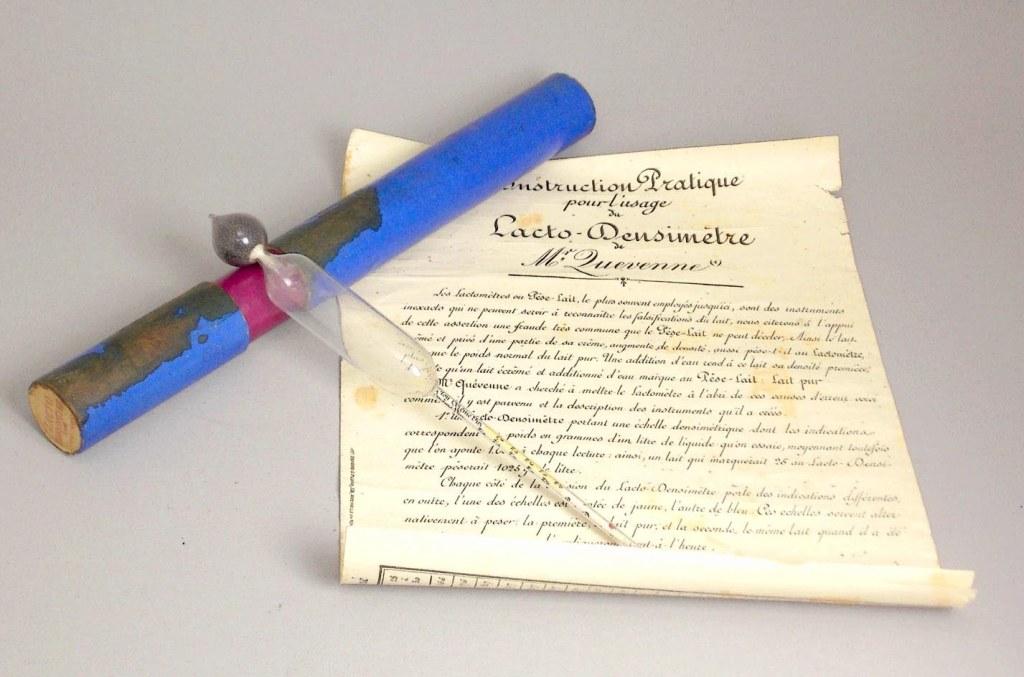 Instruction Pratique
pour l'usage
du
Lacto-Densimètre
de
Mr. Quevenne
Les Lactomètres ou Pèse-Lait, le plus souvent employés jusqu'ici, sont des instruments
inexacts qui ne peuvent servir à reconnaître les falsifications du lait, nous citerons à l'appui
de cette assertion une fraude très commune que le Pèse-Lait ne peut déceler. Ainsi le lait
et privé d'une partie de sa crème, augmente de densité, aussi pèse-t-il au Lactomètre,
que le poids normal du lait pur. Une addition d'eau rend à ce lait sa densité première,
qu'un lait écrémé et additionné d'eau marque au Pèse-Lait: Lait pur
Mr Quévenne a cherché à mettre le Lactomètre à l'abri de ces causes d'erreur, voici
comme y est parvenu et la description des instruments qu'il a créés.
Lacto-Densimètre portant une échelle densimétrique dont les indications
correspondent poids en grammes d'un litre de liquide qu'on essaie, moyennant toutefois
que l'on ajoute à chaque lecture: ainsi, un lait qui marquerait 25 au Lacto-Densi-
mètre pèserait 1025 litre.
Chaque côté de la du Lacto-Densimètre porte des indications différentes,
en outre, l'une des échelles est de jaune, l'autre de bleu. Ces échelles servent alter-
nativement à peser: la première lait pur, et la seconde, le même lait quand il a été
à l'heure.